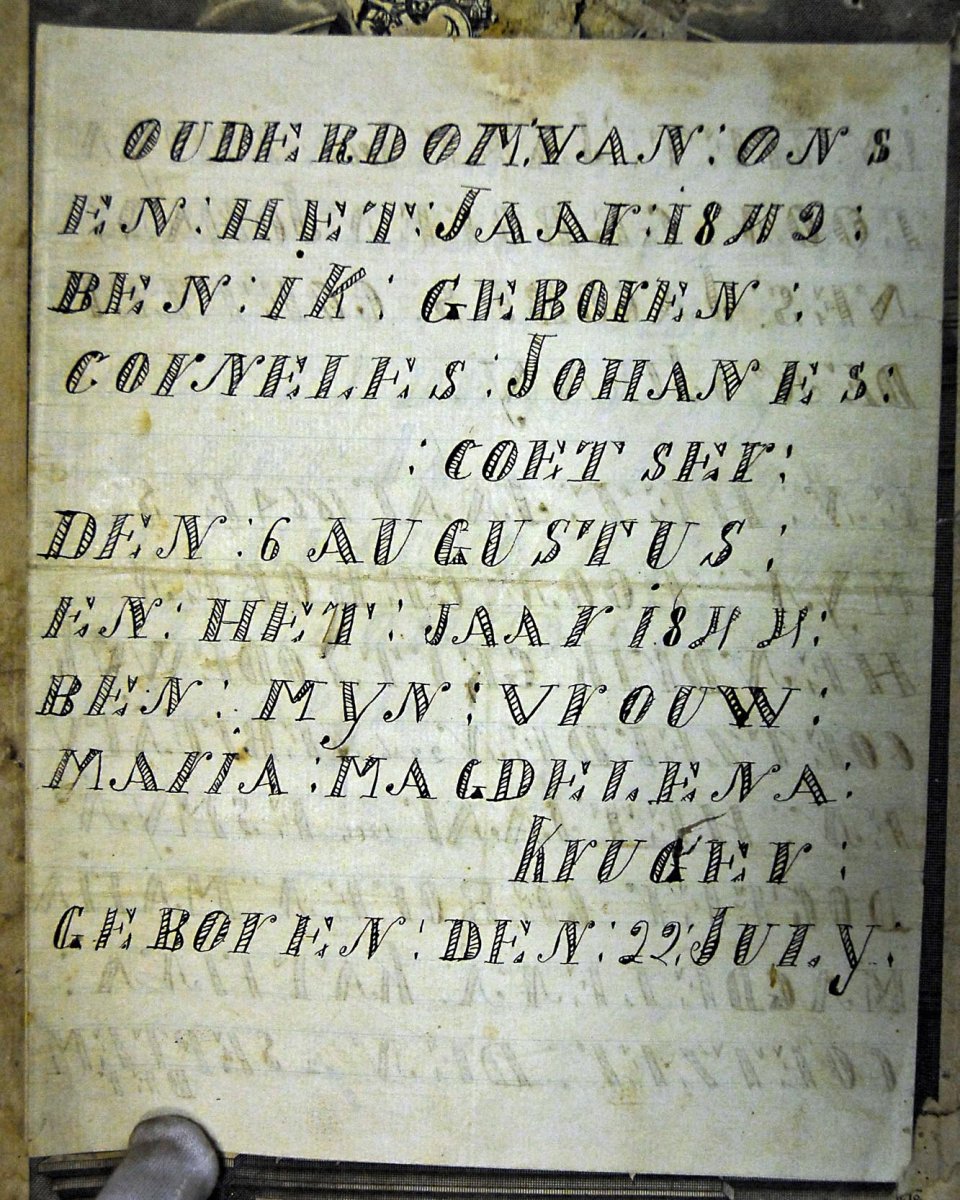 OUDERDOM:VAN:ONS
EN:HET:JAAr:1842:
BEN:iK:GEBOrEN:
COrNELES:JOHANES:
:COETSEr:
DEN:6 AUGUSTUS:
EN:HET:JAAr 1844:
BEN:MyN:VrOUW:
MAriA:MAGDELENA:
KrUGEr:
GEBOrEN:DEN:22:JULy: